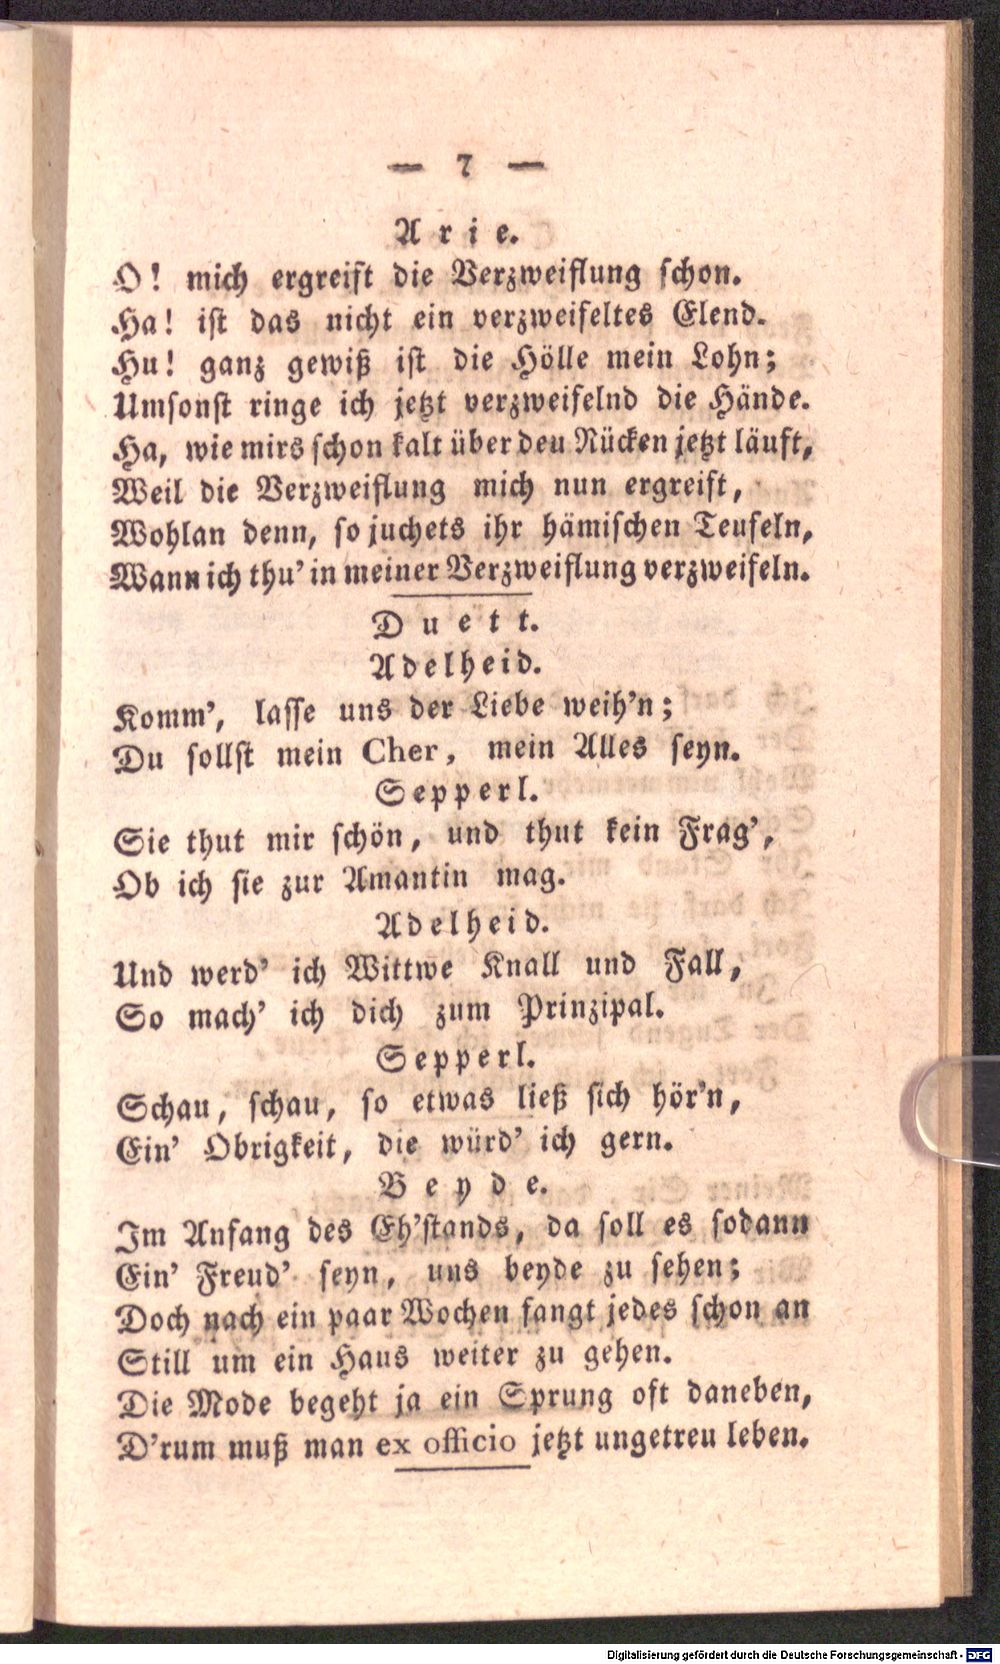 — 7 —
Arie.
O! mich ergreift die Verzweiflung schon.
Ha! ist das nicht ein verzweifeltes Elend.
Hu! ganz gewiß ist die Hölle mein Lohn;
Umsonst ringe ich jetzt verzweifelnd die Hände.
Ha, wie mirs schon kalt über den Rücken jetzt läuft,
Weil die Verzweiflung mich nun ergreift,
Wohlan denn, so juchets ihr hämischen Teufeln,
Wann ich thu' in meiner Verzweiflung verzweifeln.
Duett.
Adelheid.
Komm', lasse uns der Liebe weih'n;
Du sollst mein Cher, mein Alles seyn.
Sepperl.
Sie thut mir schön, und thut kein Frag',
Ob ich sie zur Amantin mag.
Adelheid.
Und werd' ich Wittwe Knall und Fall,
So mach' ich dich zum Prinzipal.
Sepperl.
Schau, schau, so etwas ließ sich hör'n,
Ein' Obrigkeit, die würd' ich gern.
Beyde.
Im Anfang des Eh'stands, da soll es sodann
Ein' Freud' seyn, uns beyde zu sehen;
Doch nach ein paar Wochen fangt jedes schon an
Still um ein Haus weiter zu gehen.
Die Mode begeht ja ein Sprung oft daneben,
D'rum muß man ex officio jetzt ungetreu leben.
Digitalisierung gefördert durch die Deutsche Forschungsgemeinschaft - DFG